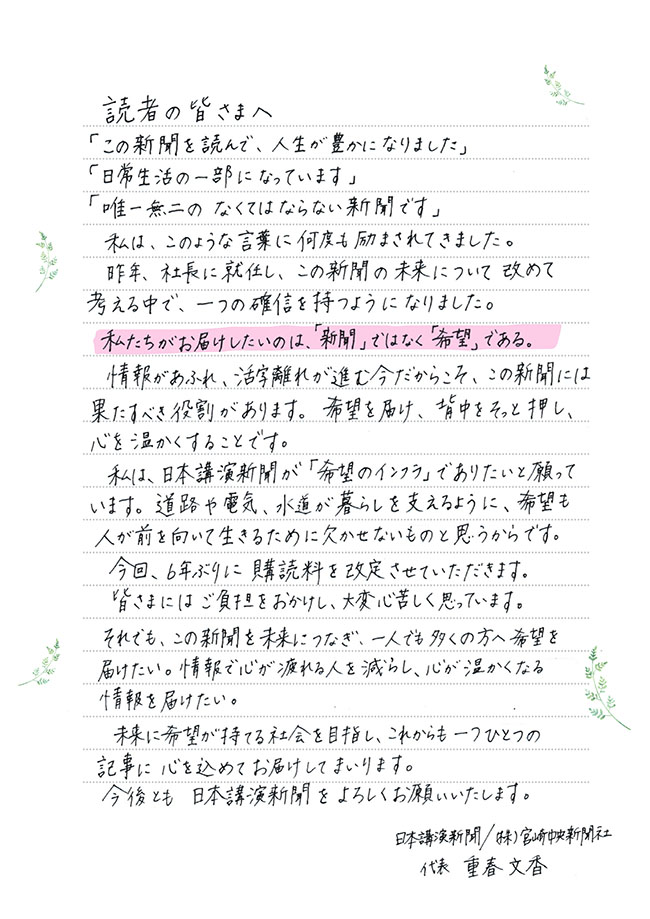 読者の皆さまへ
「この新聞を読んで、人生が豊かになりました」
「日常生活の一部になっています」
「唯一無二の なくてはならない新聞です」
私は、このような言葉に何度も励まされてきました。
昨年、社長に就任し、この新聞の未来について 改めて
考える中で、一つの確信を持つようになりました。
私たちがお届けしたいのは、「新聞」ではなく「希望」である。
情報があふれ、活字離れが進む今だからこそ、この新聞には
果たすべき役割があります。希望を届け、背中をそっと押し、
心を温かくすることです。
私は、日本講演新聞が「希望のインフラ」でありたいと願って
います。道路や電気、水道が暮らしを支えるように、希望も
人が前を向いて生きるために欠かせないものと思うからです。
今回、6年ぶりに 購読料を改定させていただきます。
皆さまには ご負担をおかけし、大変心苦しく思っています。
それでも、この新聞を未来につなぎ、一人でも多くの方へ希望を
届けたい。情報で心が疲れる人を減らし、心が温かくなる
情報を届けたい。
未来に希望が持てる社会を目指し、これからも一つひとつの
記事に 心を込めてお届けしてまいります。
今後とも 日本講演新聞を よろしくお願いいたします。
日本講演新聞/(株)宮崎中央新聞社
代表 重春文香